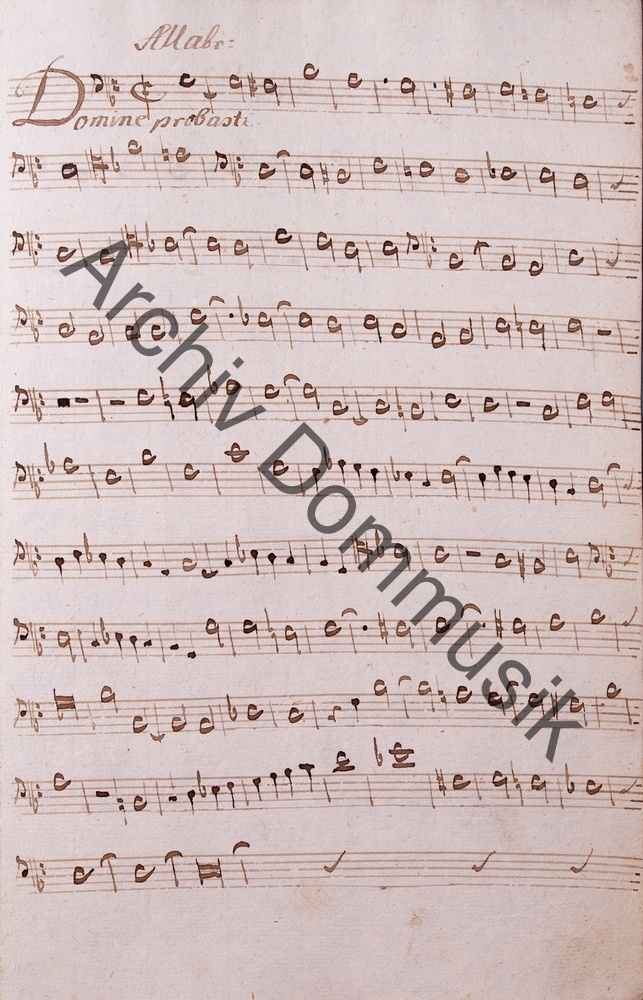 Allabr:
Domine probasti
Archiv Dommusik